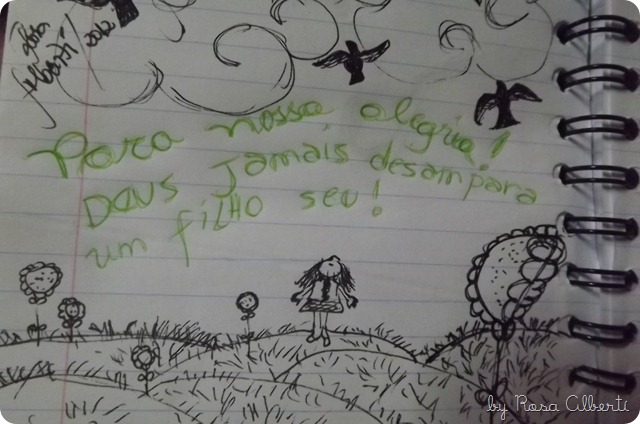 Para nossa alegria!
Deus jamais desampara
um filho seu!
by Rosa Alberti